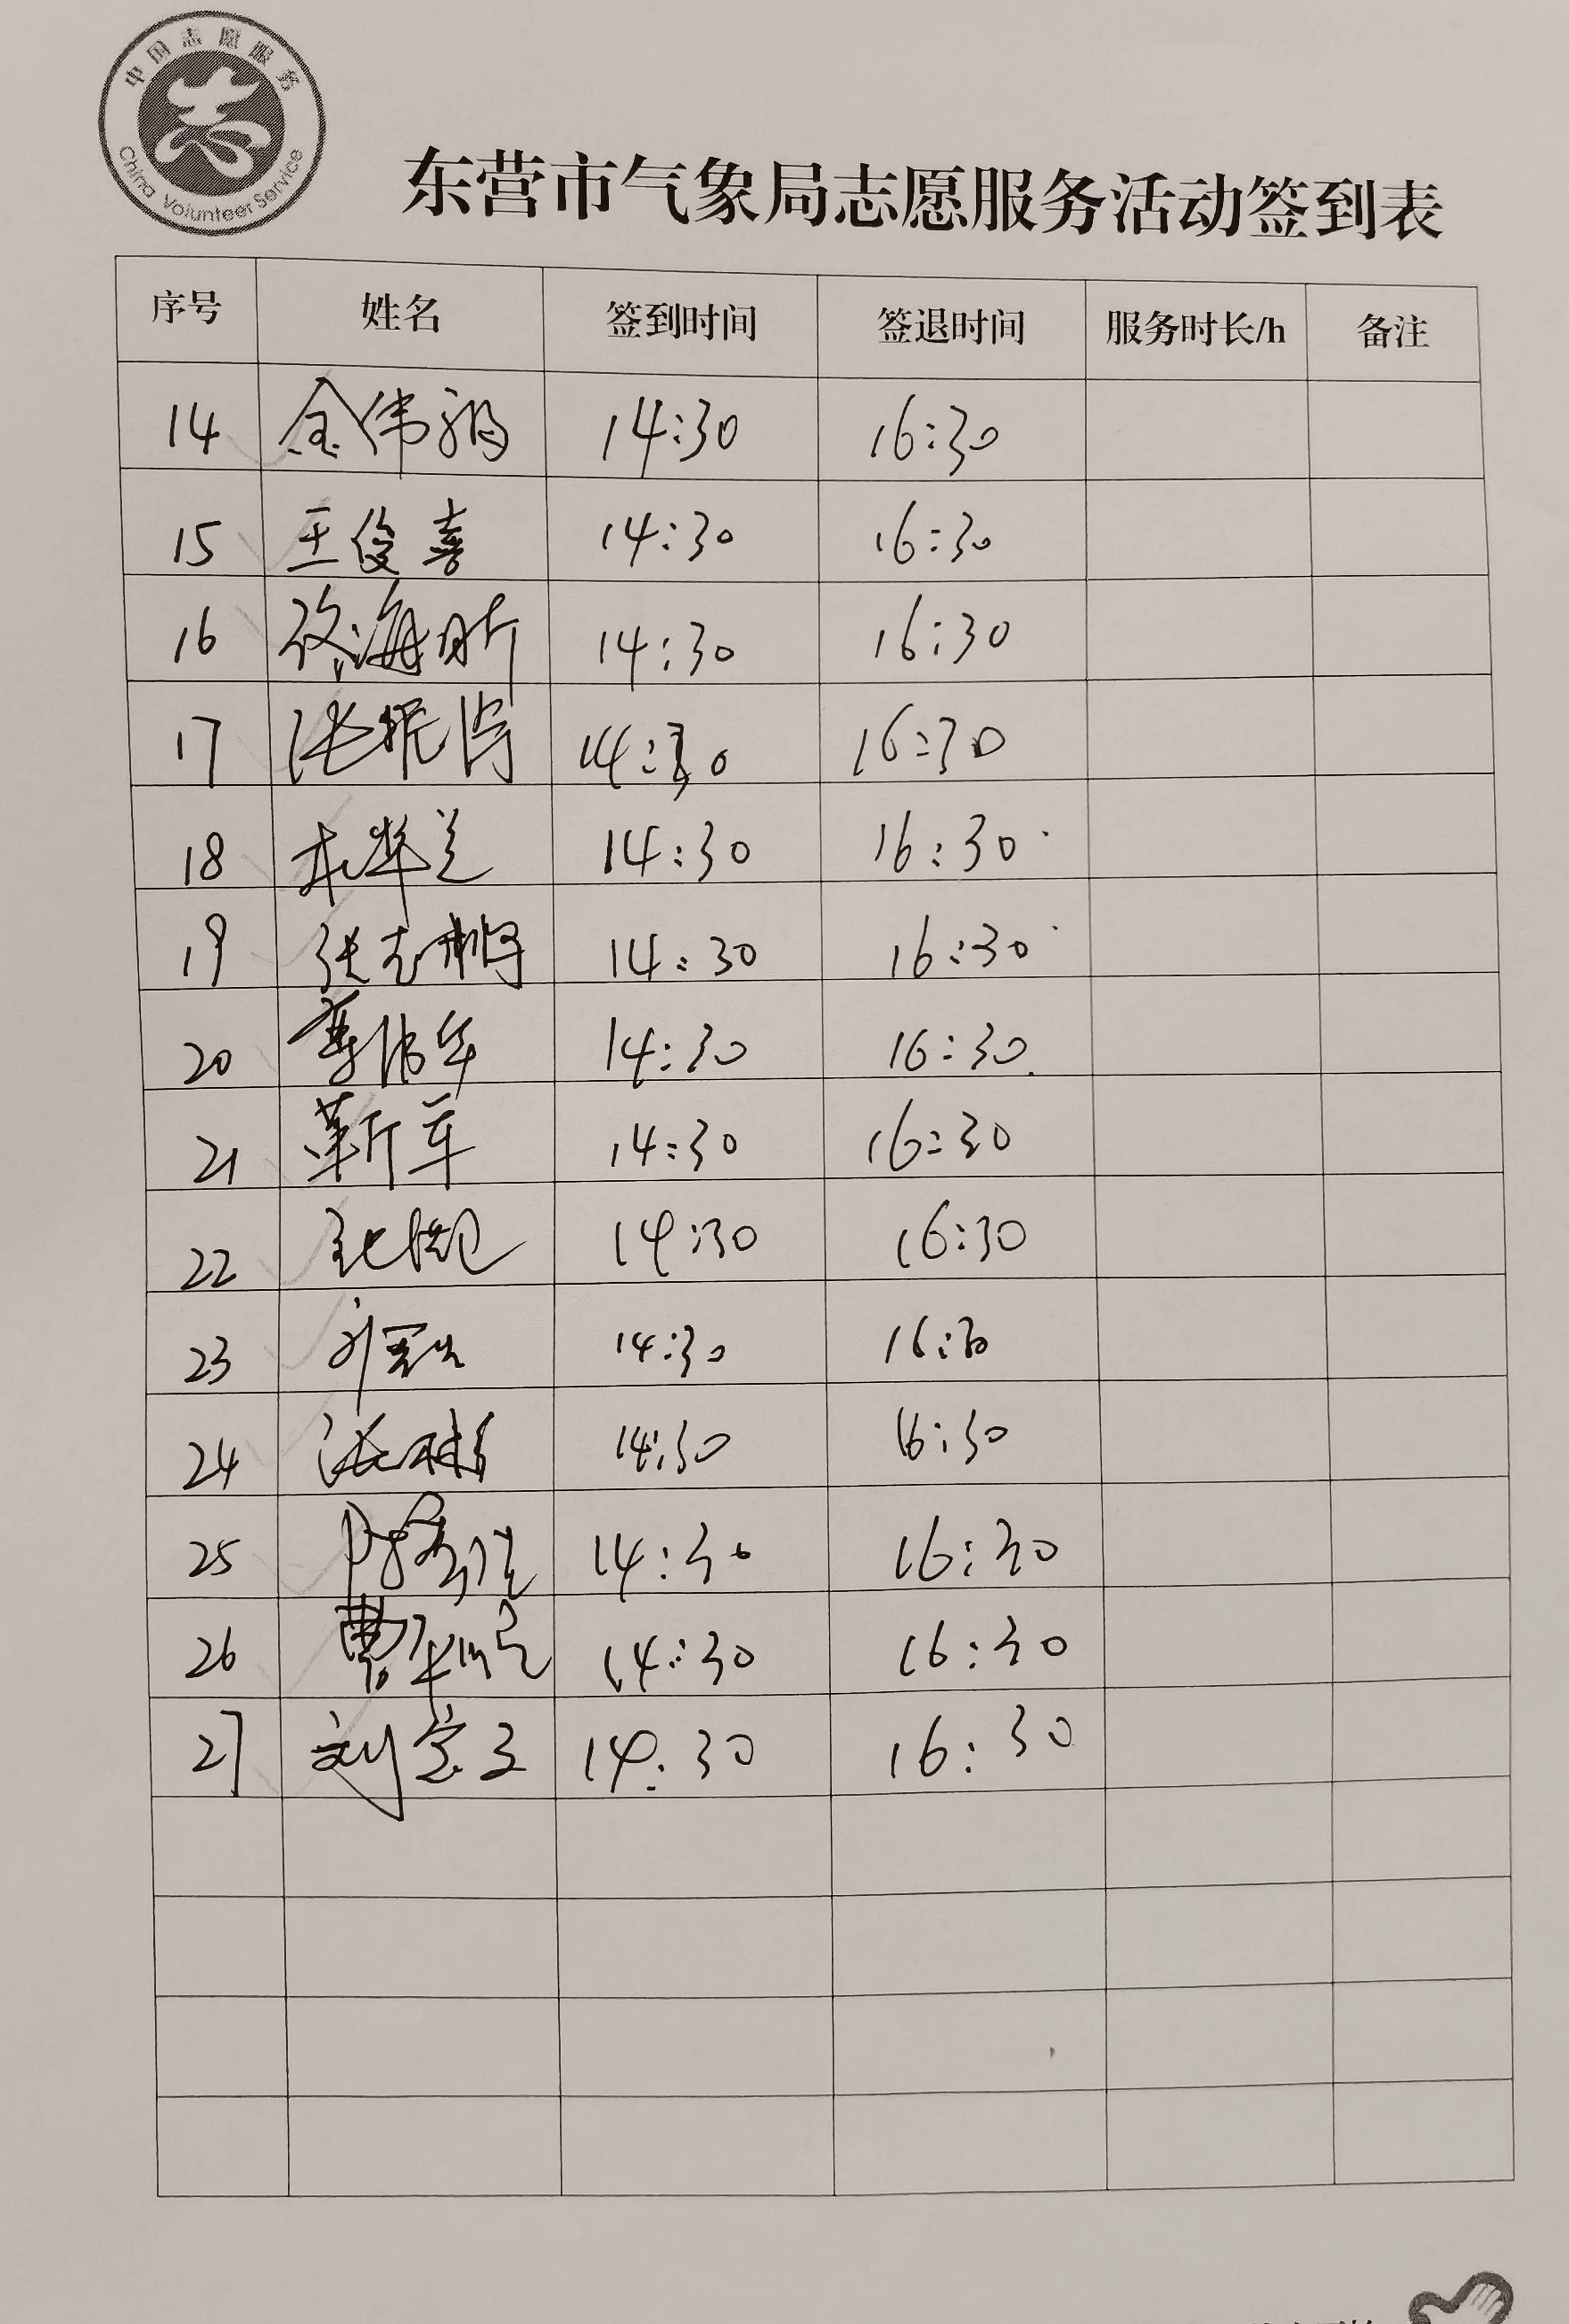 中国志愿服务
China Volunteer Service
东营市气象局志愿服务活动签到表
序号 姓名 签到时间 签退时间 服务时长/h 备注
14 金伟福 14:30 16:30
15 王俊喜 14:30 16:30
16 14:30 16:30
17 张振 14:30 16:30
18 14:30 16:30
19 张志 14:30 16:30
20 14:30 16:30
21 靳军 14:30 16:30
22 14:30 16:30
23 14:30 16:30
24 14:30 16:30
25 14:30 16:30
26 曹 14:30 16:30
27 刘宝玉 14:30 16:30